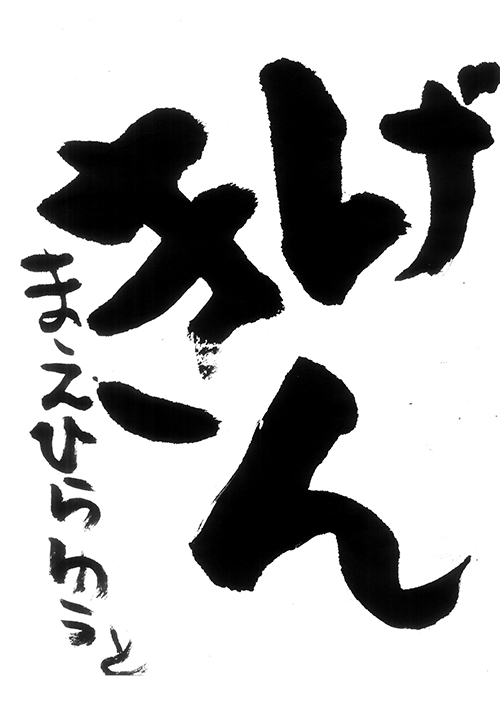 げん
き
まえひらゆうと